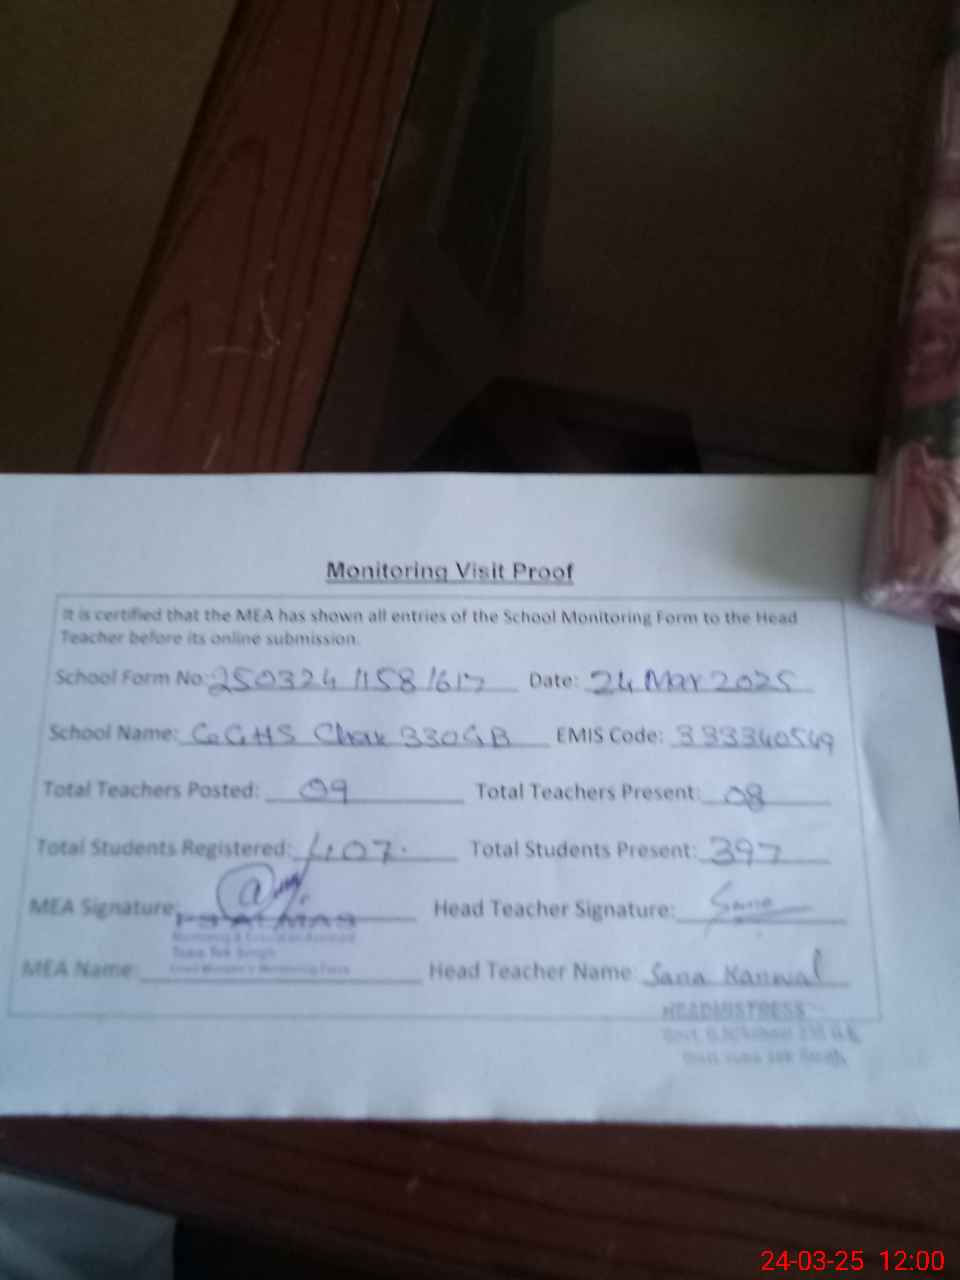 Monitoring Visit Proof
It is certified that the MEA has shown all entries of the School Monitoring Form to the Head
Teacher before its online submission.
School Form No: 250324/1158/617 Date: 24 Mar 2025
School Name: GGHS Chak 330GB EMIS Code: 333340549
Total Teachers Posted: 09 Total Teachers Present: 08
Total Students Registered: 407. Total Students Present: 397
MEA Signature: Head Teacher Signature: Sana
Toba Tek Singh
MEA Name: Head Teacher Name: Sana Kanwal
HEADMISTRESS
24-03-25 12:00